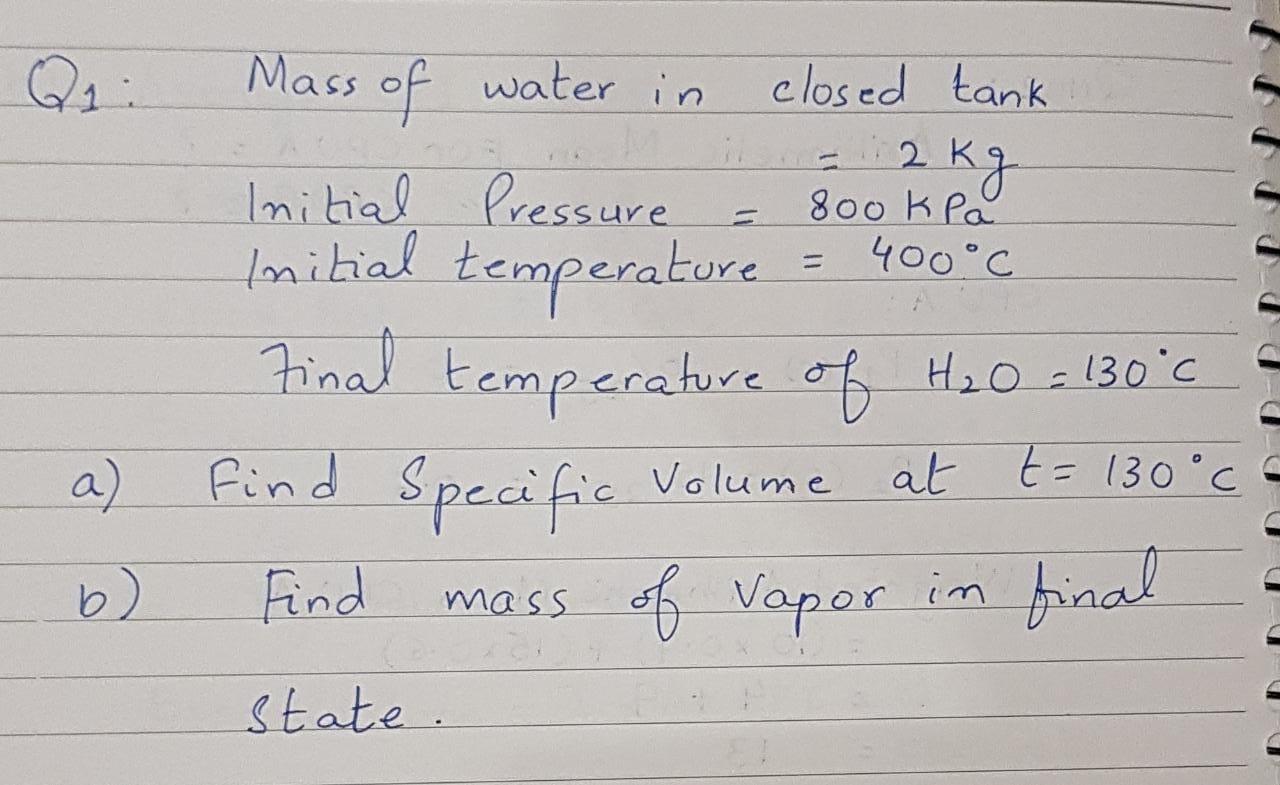 Q1: Mass of water in closed tank
= 2 Kg
Initial Pressure = 800 KPa
Initial temperature = 400°C
Final temperature of H2O = 130°C
a) Find Specific Volume at t= 130°C
b) Find mass of Vapor in final
state.